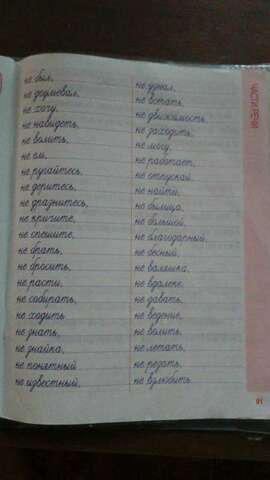 не был,
не доумевал,
не хочу,
не навидеть,
не волить,
не ел,
не ругайтесь,
не деритесь,
не дразнитесь,
не кричите,
не спешите,
не брать,
не бросить,
не расти,
не собирать,
не ходить
не знать,
не знайка,
не понятный
не известный,
не узнал,
не встать,
не движимость,
не заходить,
не могу,
не работает,
не отпускай,
не найти,
не былица,
не большой,
не благодарный,
не бесный,
не валяшка,
не вдалеке,
не давать,
не ведение,
не волить,
не летать,
не резать,
не взлюбить
ЧАСТИ РЕЧИ
91